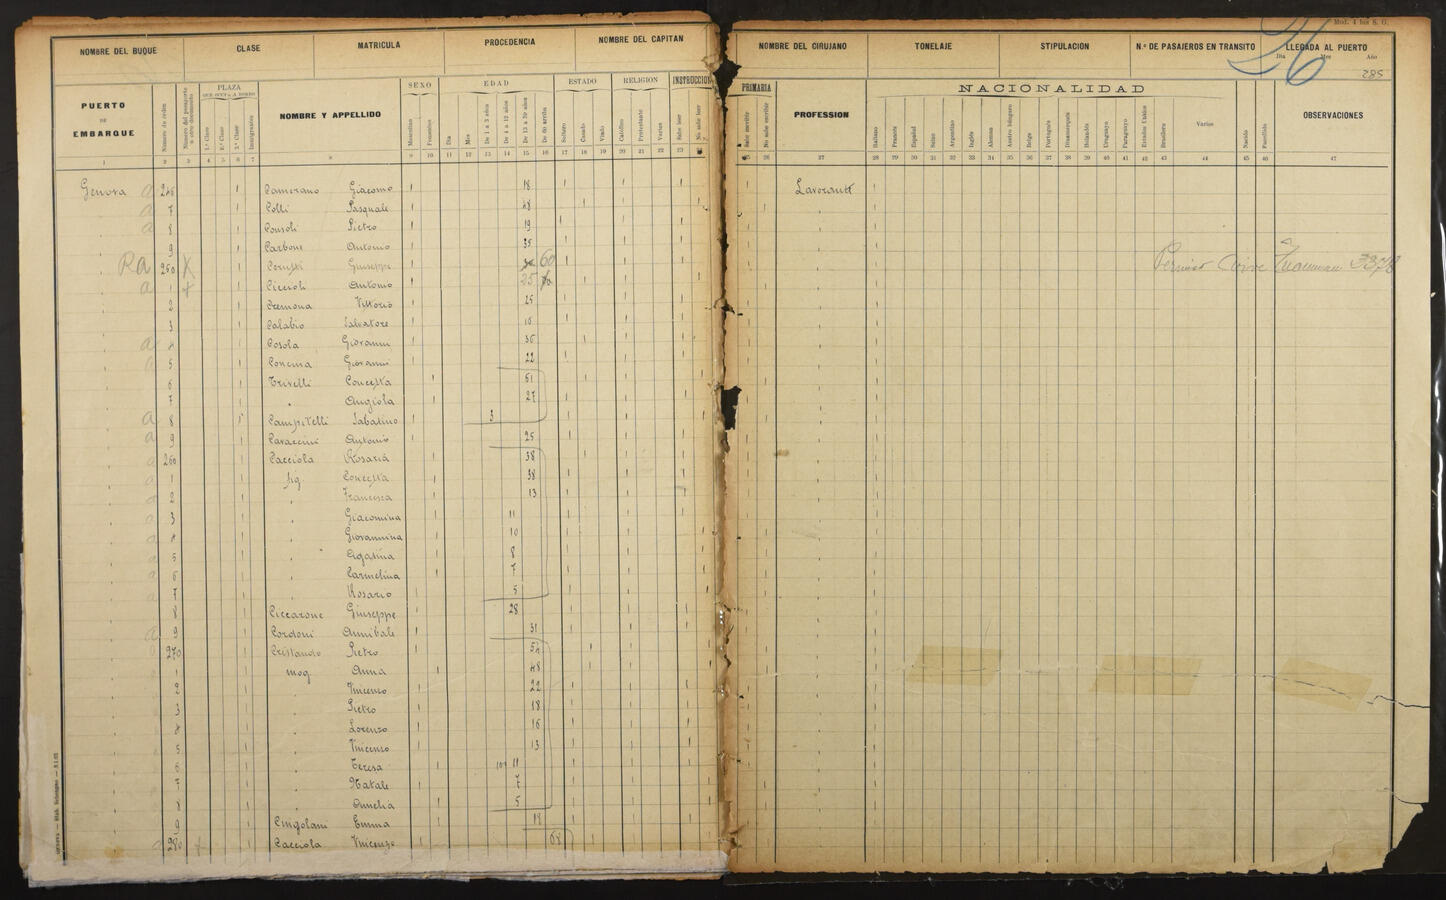 Mod. 4 bis S. G.
26
NOMBRE DEL BUQUE CLASE MATRICULA PROCEDENCIA NOMBRE DEL CAPITAN NOMBRE DEL CIRUJANO TONELAJE STIPULACIÓN N.º DE PASAJEROS EN TRANSITO LLEGADA AL PUERTO
Dia Mes Año
285
PUERTO DE EMBARQUE
Número de orden
Número del pasaporte u otro documento
PLAZA
QUE OCUPA A BORDO
1.ª Clase 2.ª Clase 3.ª Clase Inmigración
NOMBRE Y APPELLIDO
SEXO
Masculino Femenino
EDAD
Dia Mes De 1 a 3 años De 4 a 12 años De 13 a 59 años De 60 arriba
ESTADO
Soltero Casado Viudo
RELIGION
Católico Protestante Varias
INSTRUCCION PRIMARIA
Sabe leer No sabe leer Sabe escribir No sabe escribir
PROFESSION
NACIONALIDAD
Italiano Francés Español Suizo Argentino Inglés Aleman Austro húngaro Belga Portugués Dinamarqués Holandés Uruguayo Paraguayo Estados Unidos Brasilero Varios
Nacido Fanecido
OBSERVACIONES
1 2 3 4 5 6 7 8 9 10 11 12 13 14 15 16 17 18 19 20 21 22 23 24 25 26 27 28 29 30 31 32 33 34 35 36 37 38 39 40 41 42 43 44 45 46 47
Genova a 246 Camerano Giacomo 18 Lavorante
a 7 Colli Pasquale 48
a 8 Consoli Pietro 19
9 Carbone Antonio 35
Ra 250 X Cerutti Giuseppe 60 3378
a 1 x Ciceroli Antonio 35
2 Cremona Vittorio 25
3 Calabio Salvatore 16
a 4 Cosola Giovanni 36
a 5 Concina Giovanni 22
6 Crivelli Concetta 51
7 " Angiola 27
a 8 Campitelli Sabatino 3
a 9 Cavaccini Antonio 25
a 260 Cacciola Rosaria 38
a 1 fig. Concetta 38
a 2 " Francesca 13
a 3 " Giacomina 11
a 4 " Giovannina 10
a 5 " Agatina 8
a 6 " Carmelina 7
a 7 " Rosario 5
8 Ciccarone Giuseppe 28
a 9 Cordoni Annibale 31
a 270 Cristaudo Pietro 54
1 mog Anna 48
2 " Vincenzo 22
3 " Pietro 18
4 " Lorenzo 16
5 " Vincenzo 13
6 " Teresa 11
7 " Natale 7
8 " Amelia 5
9 Cingolani Emma 18
a 280 x Cacciola Vincenzo 68